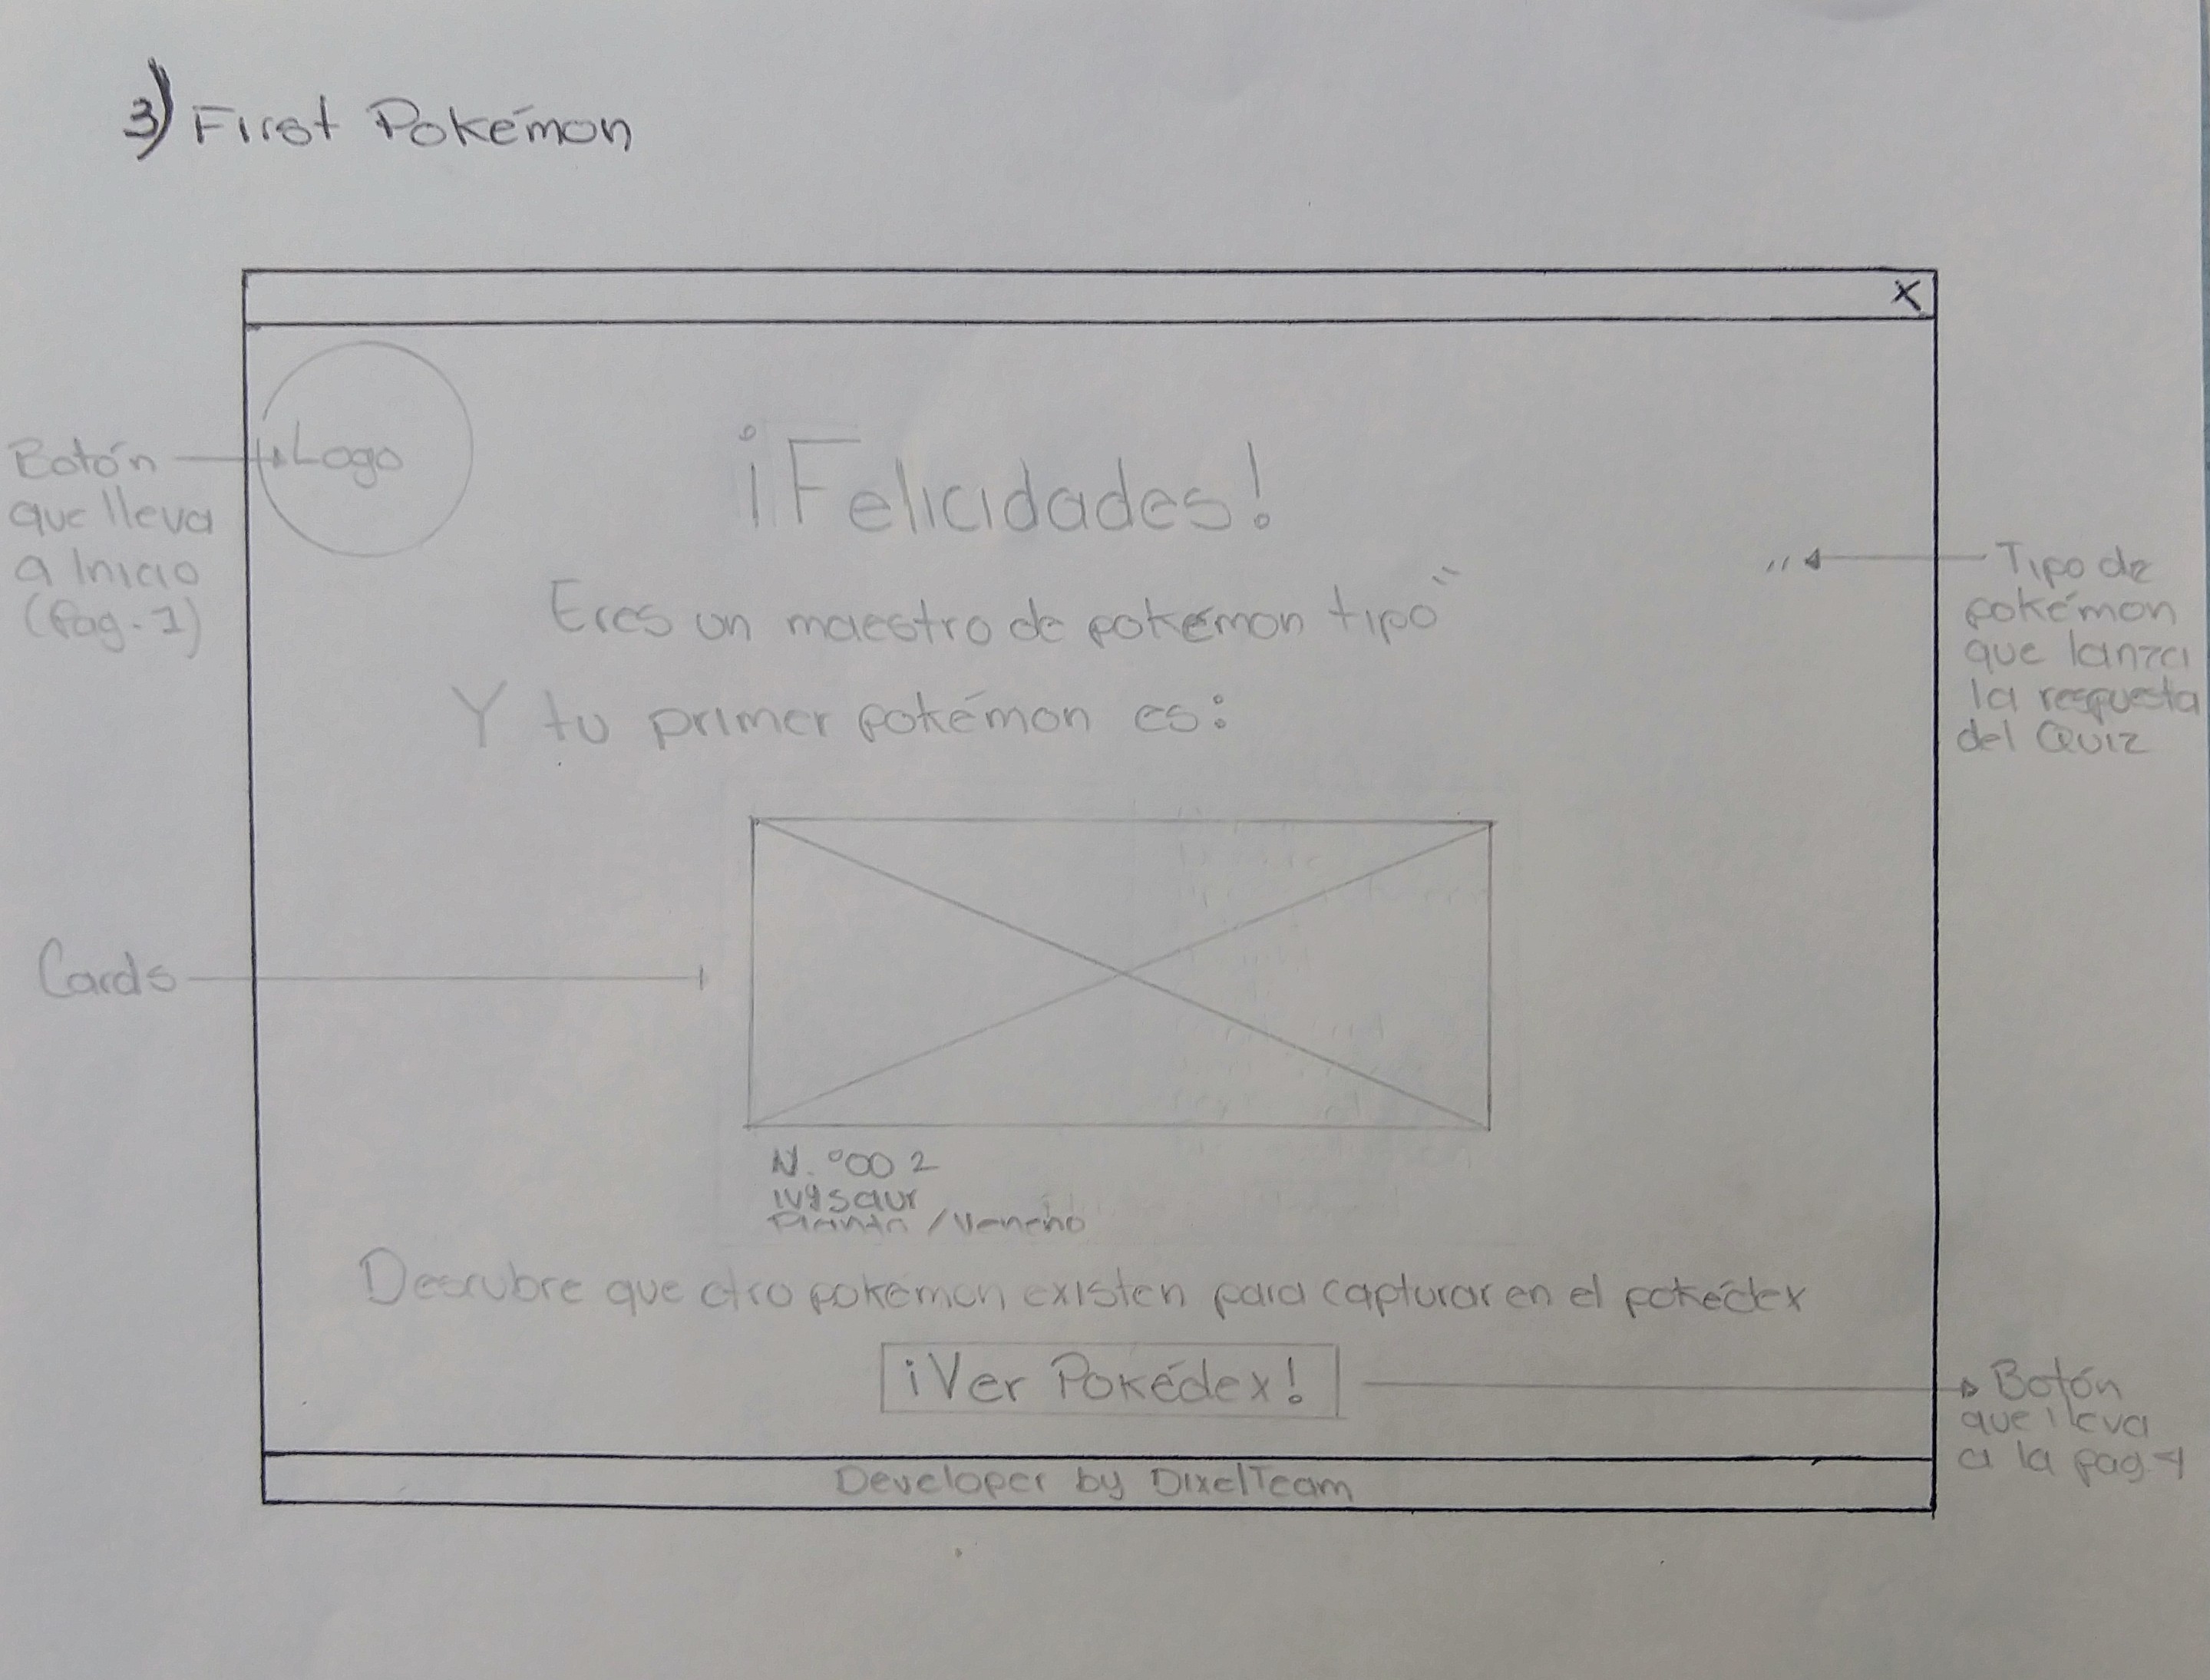 3) First Pokémon
X
Logo
Botón
que lleva
a Inicio
(Pag. 1)
¡Felicidades!
Eres un maestro de pokémon tipo "
"
Tipo de
pokémon
que lanza
la respuesta
del Quiz
Y tu primer pokémon es:
Cards
N.°002
Ivysaur
Planta / Veneno
Descubre que otro pokémon existen para capturar en el pokédex
¡Ver Pokédex!
Botón
que lleva
a la pag.
Developer by DixelTeam